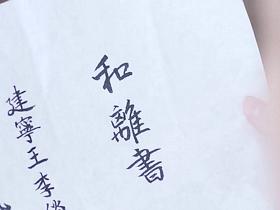 和離書
建寧王李